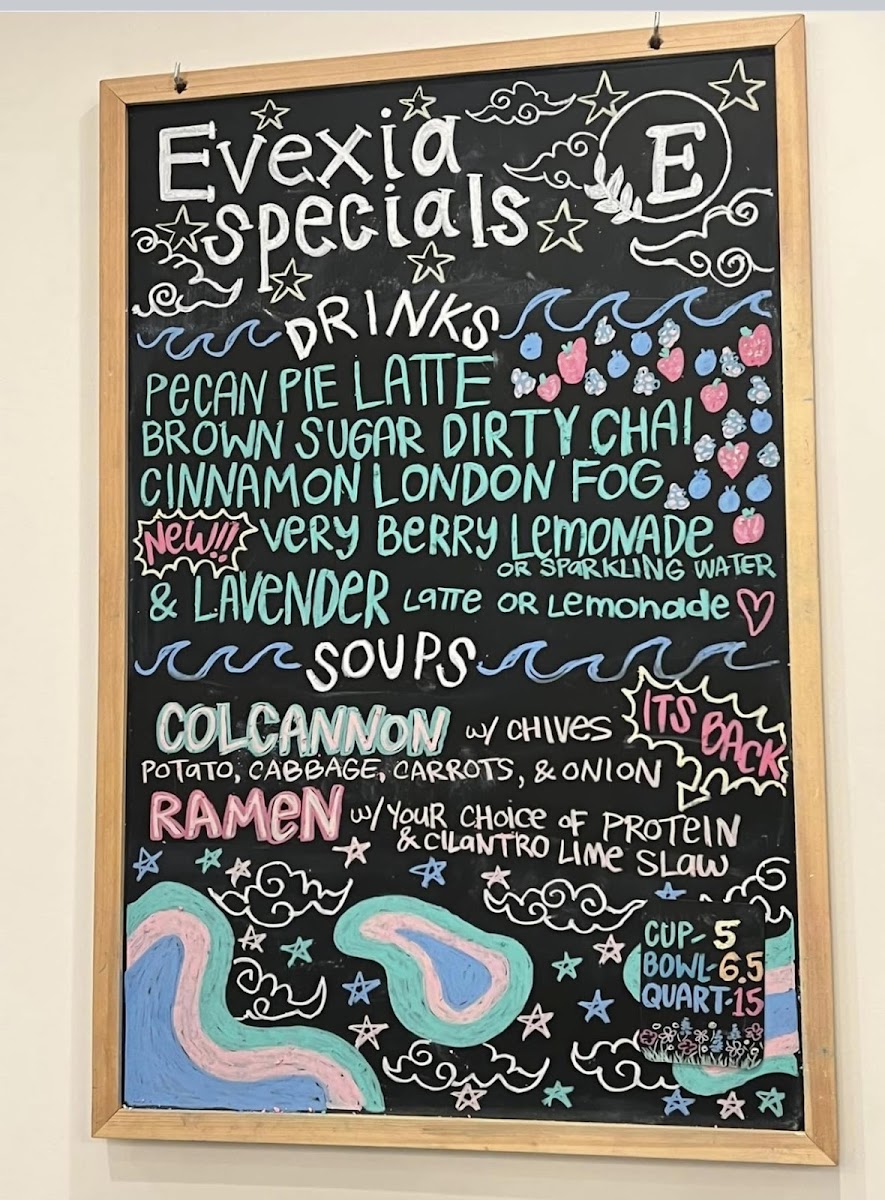 Evexia
specials
E
DRINKS
PECAN PIE LATTE
BROWN SUGAR DIRTY CHAI
CINNAMON LONDON FOG
NEW!!! VERY BERRY LEMONADE
OR SPARKLING WATER
& LAVENDER LATTE OR LEMONADE
SOUPS
COLCANNON W/ CHIVES
ITS BACK
POTATO, CABBAGE, CARROTS, & ONION
RAMEN W/ YOUR CHOICE OF PROTEIN
& CILANTRO LIME SLAW
CUP- 5
BOWL- 6.5
QUART- 15